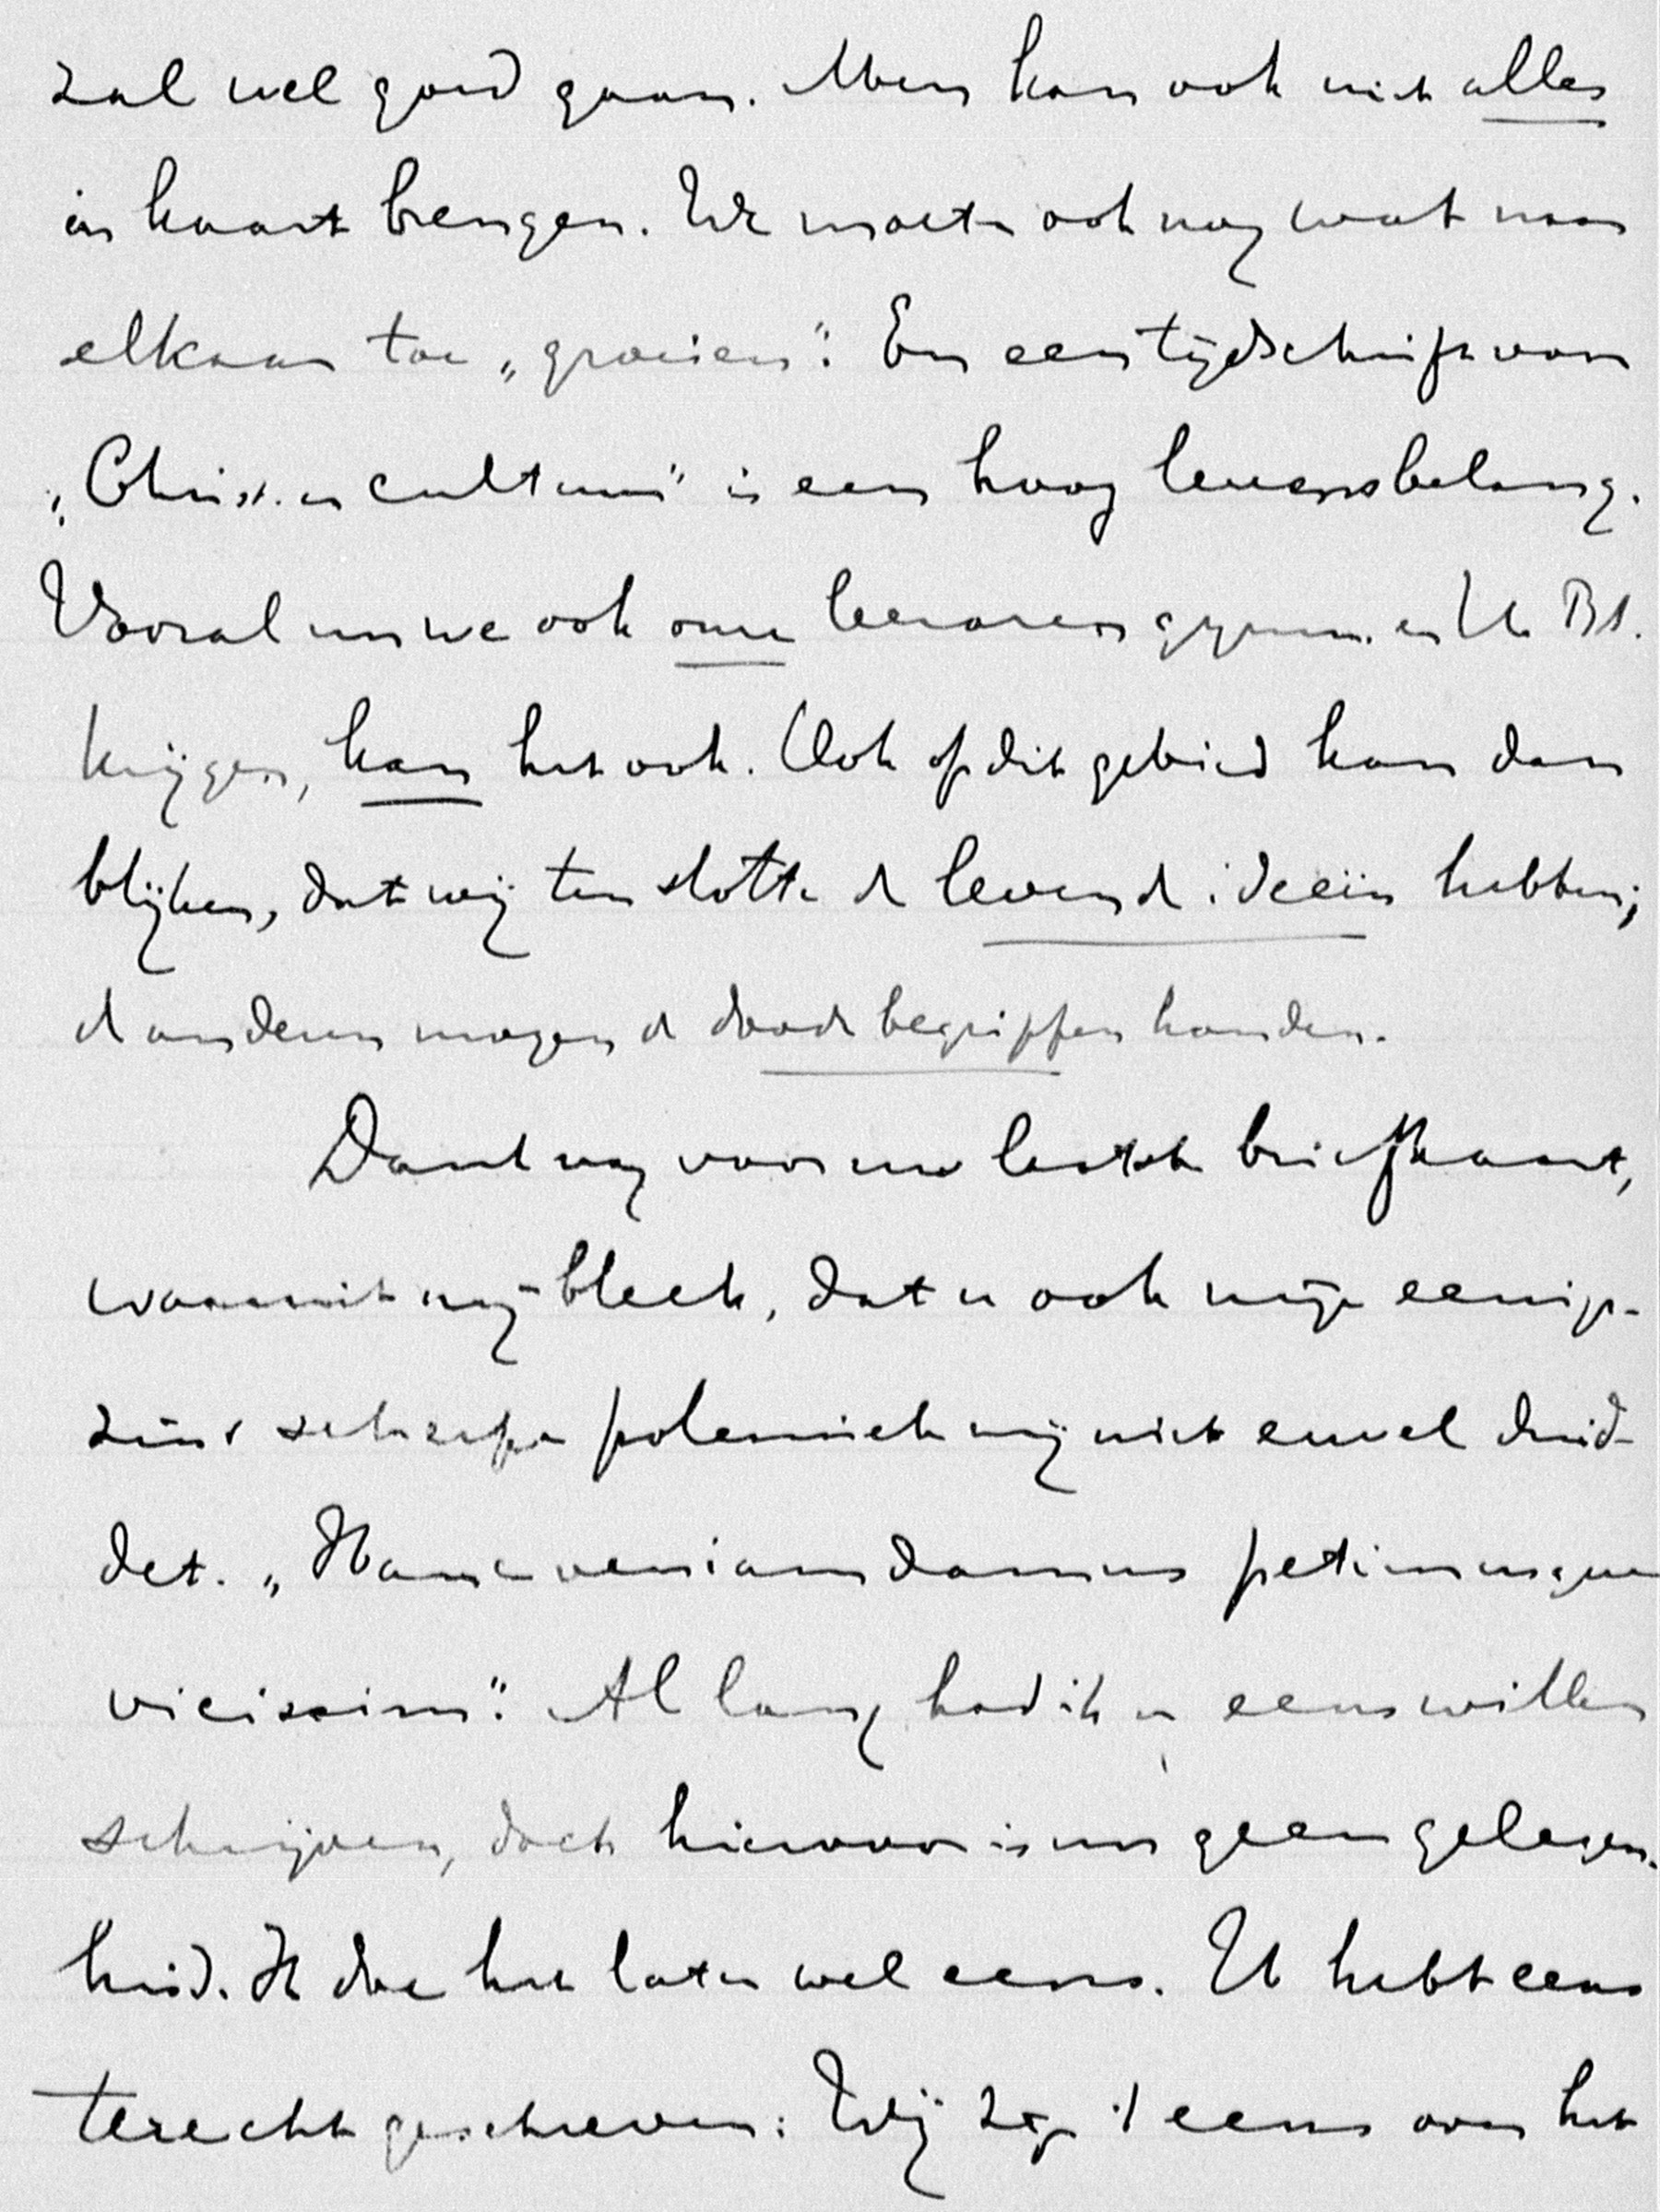 zal wel goed gaan. Men kan ook niet alles
in kaart brengen. We moeten ook nog wat naar
elkaar toe „groeien". En een tijdschrift van
„Christ. en cultuur" is een hoog levensbelang.
Vooral nu we ook onze leeraren gymn. en
krijgen, kan het ook. Ook op dit gebied kan dan
blijken, dat wij ten slotte de levende ideeën hebben;
de anderen mogen de doode begrippen houden.
Dank nog voor uw laatste briefkaart,
waaruit mij bleek, dat u ook mijn eenigs-
zins scherpe polemiek mij niet euvel duid-
det. „Hanc veniam damus petimusque
vicissim". Al lang had ik u eens willen
schrijven, doch hiervoor is nu geen gelegen-
heid. Ik doe het later wel eens. U hebt eens
terecht geschreven: Wij zijn 't eens over het